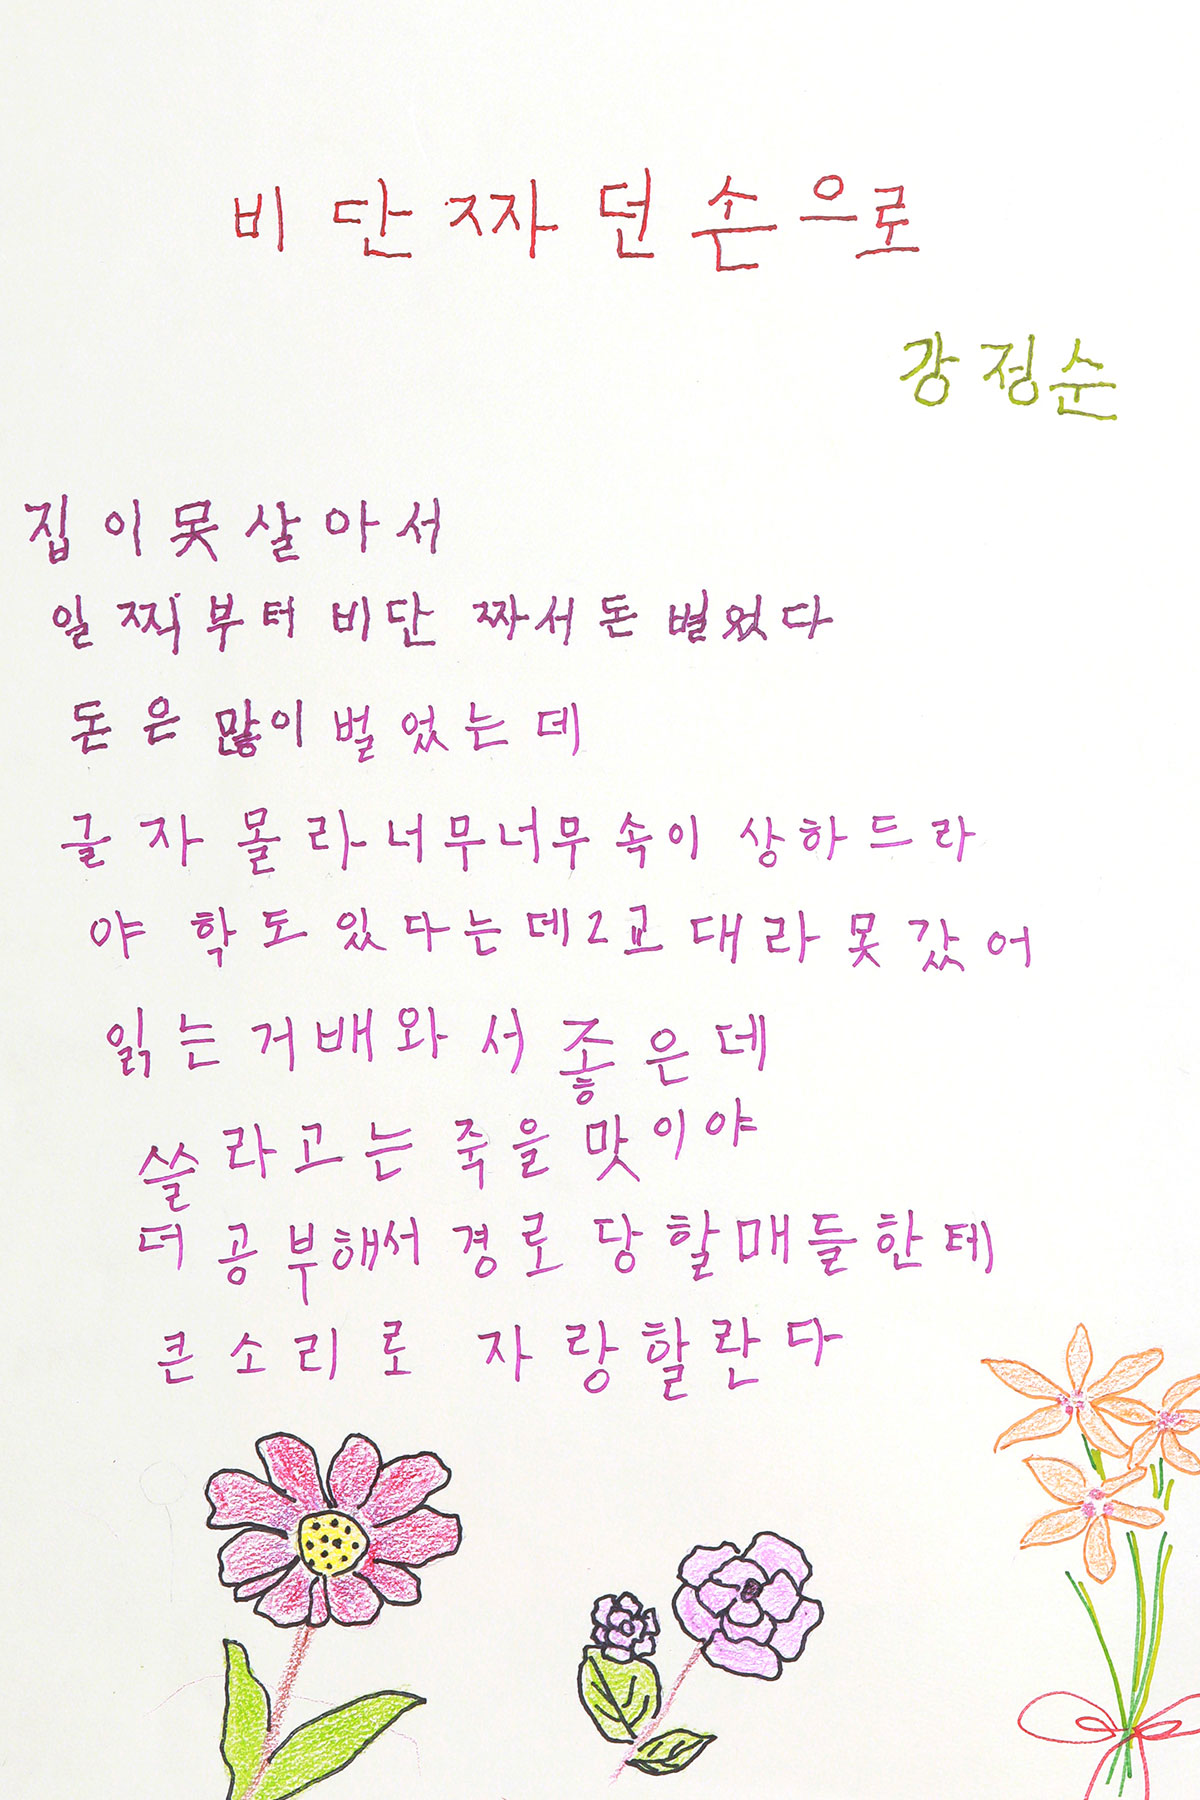 비단 짜던 손으로
강정순
집이 못 살아서
일찍부터 비단 짜서 돈 벌었다
돈은 많이 벌었는데
글자 몰라 너무너무 속이 상하드라
야학도 있다는데 2교대라 못 갔어
읽는 거 배와서 좋은데
쓸라고는 죽을 맛이야
더 공부해서 경로당 할매들한테
큰소리로 자랑할란다